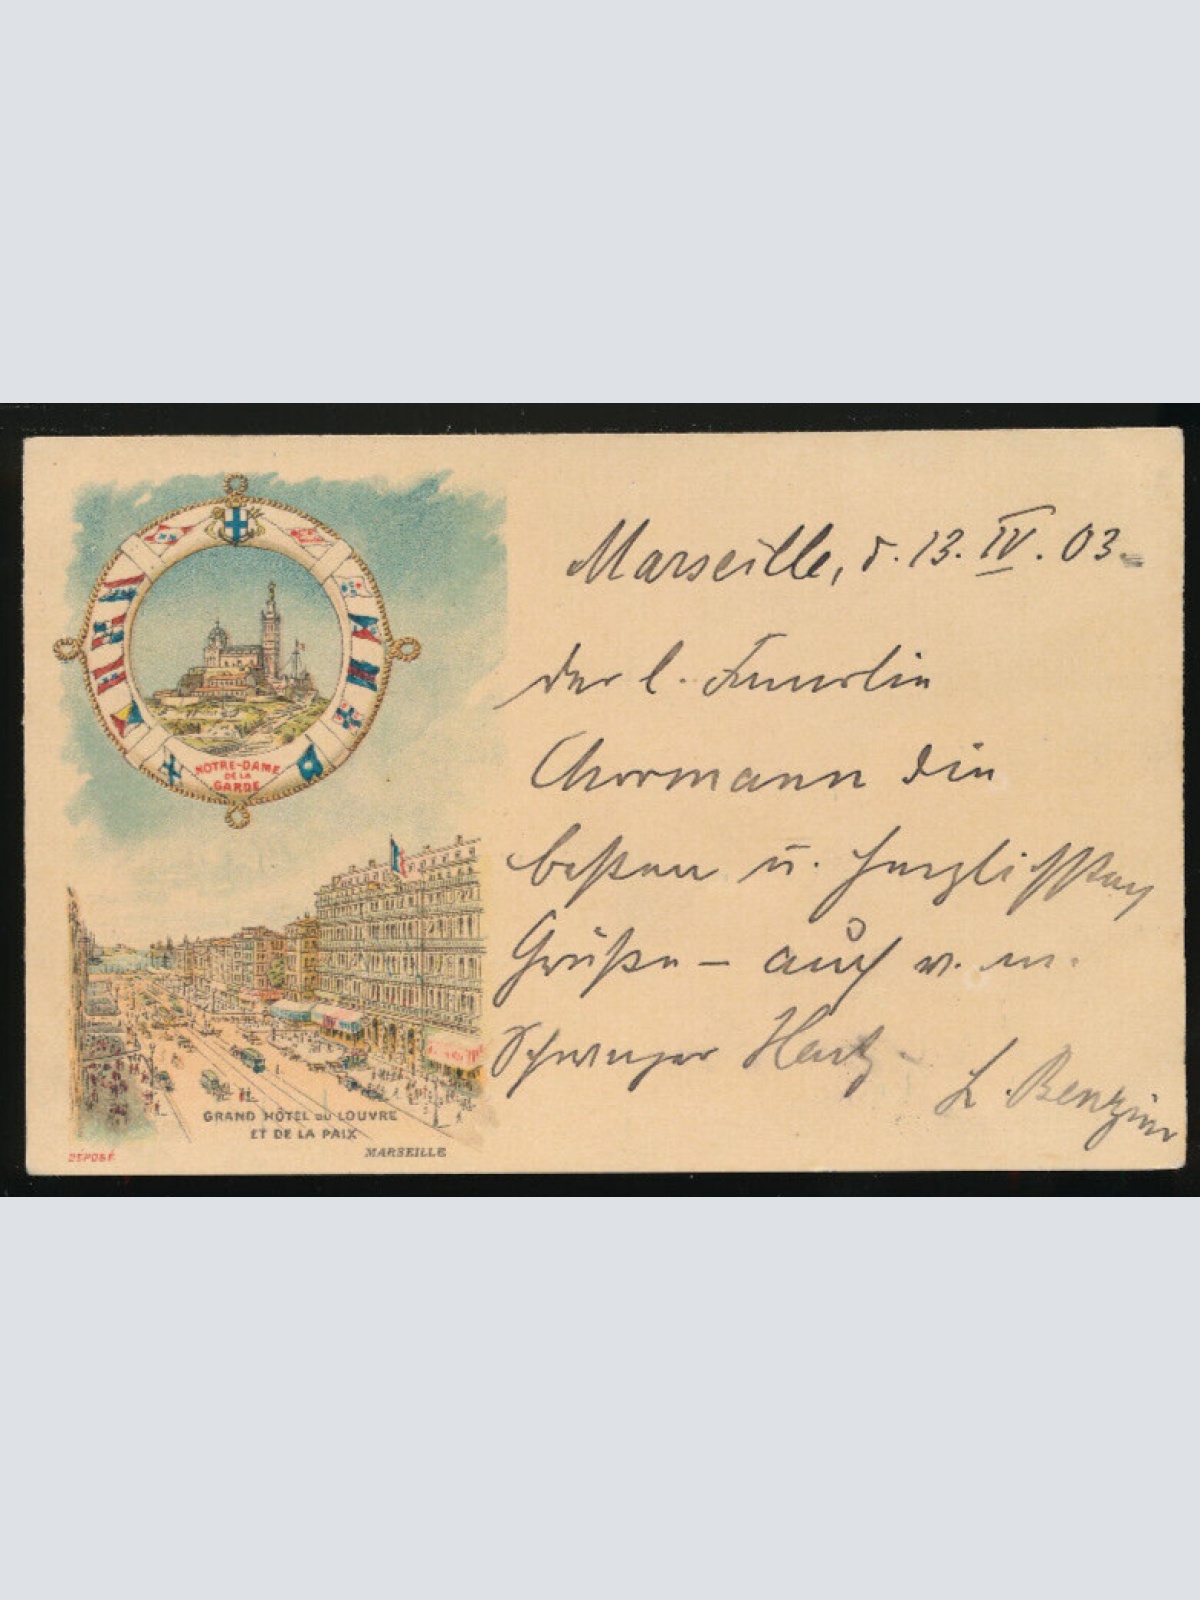 NOTRE-DAME
DE LA
GARDE
GRAND HÔTEL DU LOUVRE
ET DE LA PAIX
MARSEILLE
DÉPOSÉ
Marseille, d. 13. IV. 03.
der l. Familie
Chormann die
besten u. herzlichsten
Grüße – auch v. m.
Schwager
L. Benzin